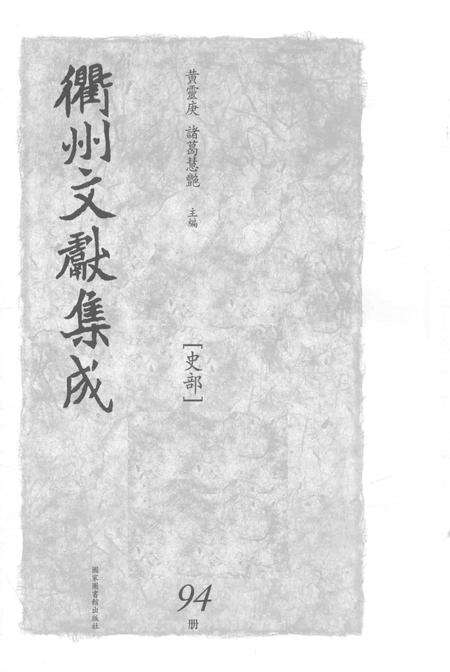 衢州文獻集成
黃靈庚 諸葛慧艷 主編
[史部]
94
册
國家圖書館出版社